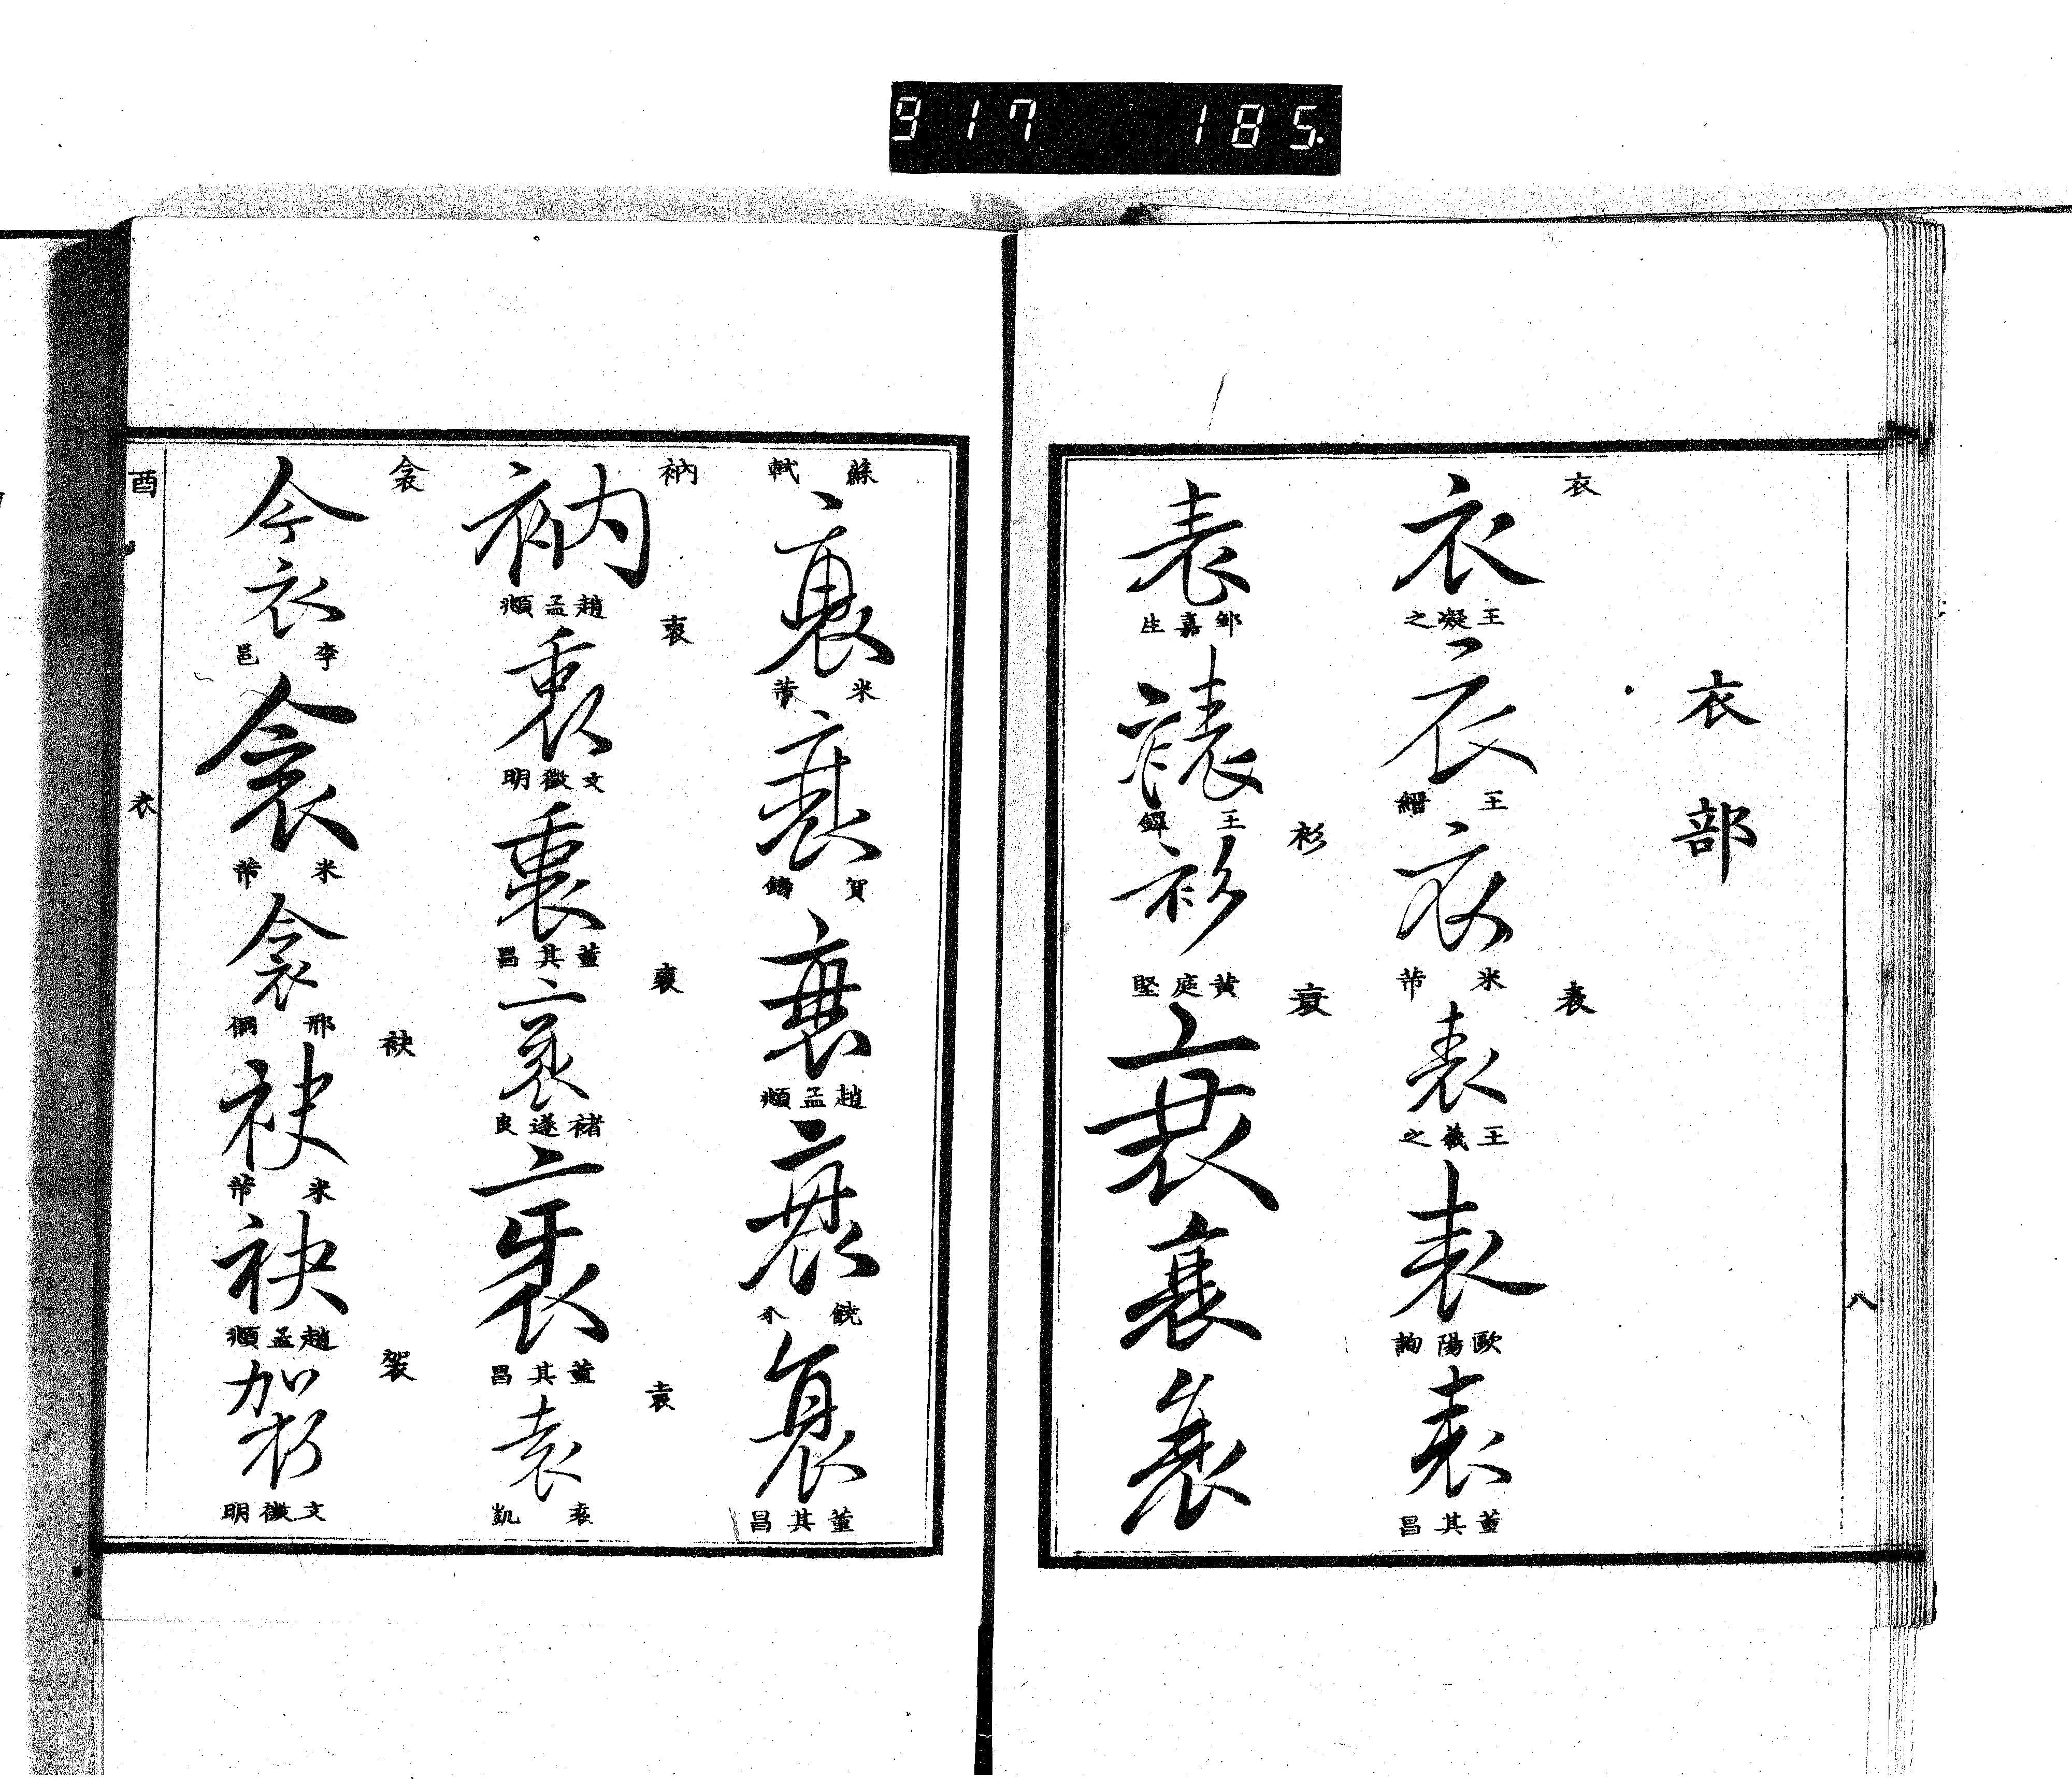 917 185.
衣部
衣
衣
王凝之
衣
王縉
衣
米芾
表
表
王羲之
表
歐陽詢
表
董其昌
表
鄒嘉生
襪
王鐸
衫
衫
黃庭堅
衰
衰
衰
衰
蘇軾
衰
米芾
衰
賀鑄
衰
趙孟頫
衰
鮮于樞
衰
董其昌
衲
衲
趙孟頫
衷
衷
文徵明
衷
董其昌
袤
褚遂良
董其昌
袁
袁
袁凱
衾
衾
李邕
衾
米芾
衾
邢侗
袂
袂
米芾
袂
趙孟頫
袈
袈
文徵明
酉
衣
八